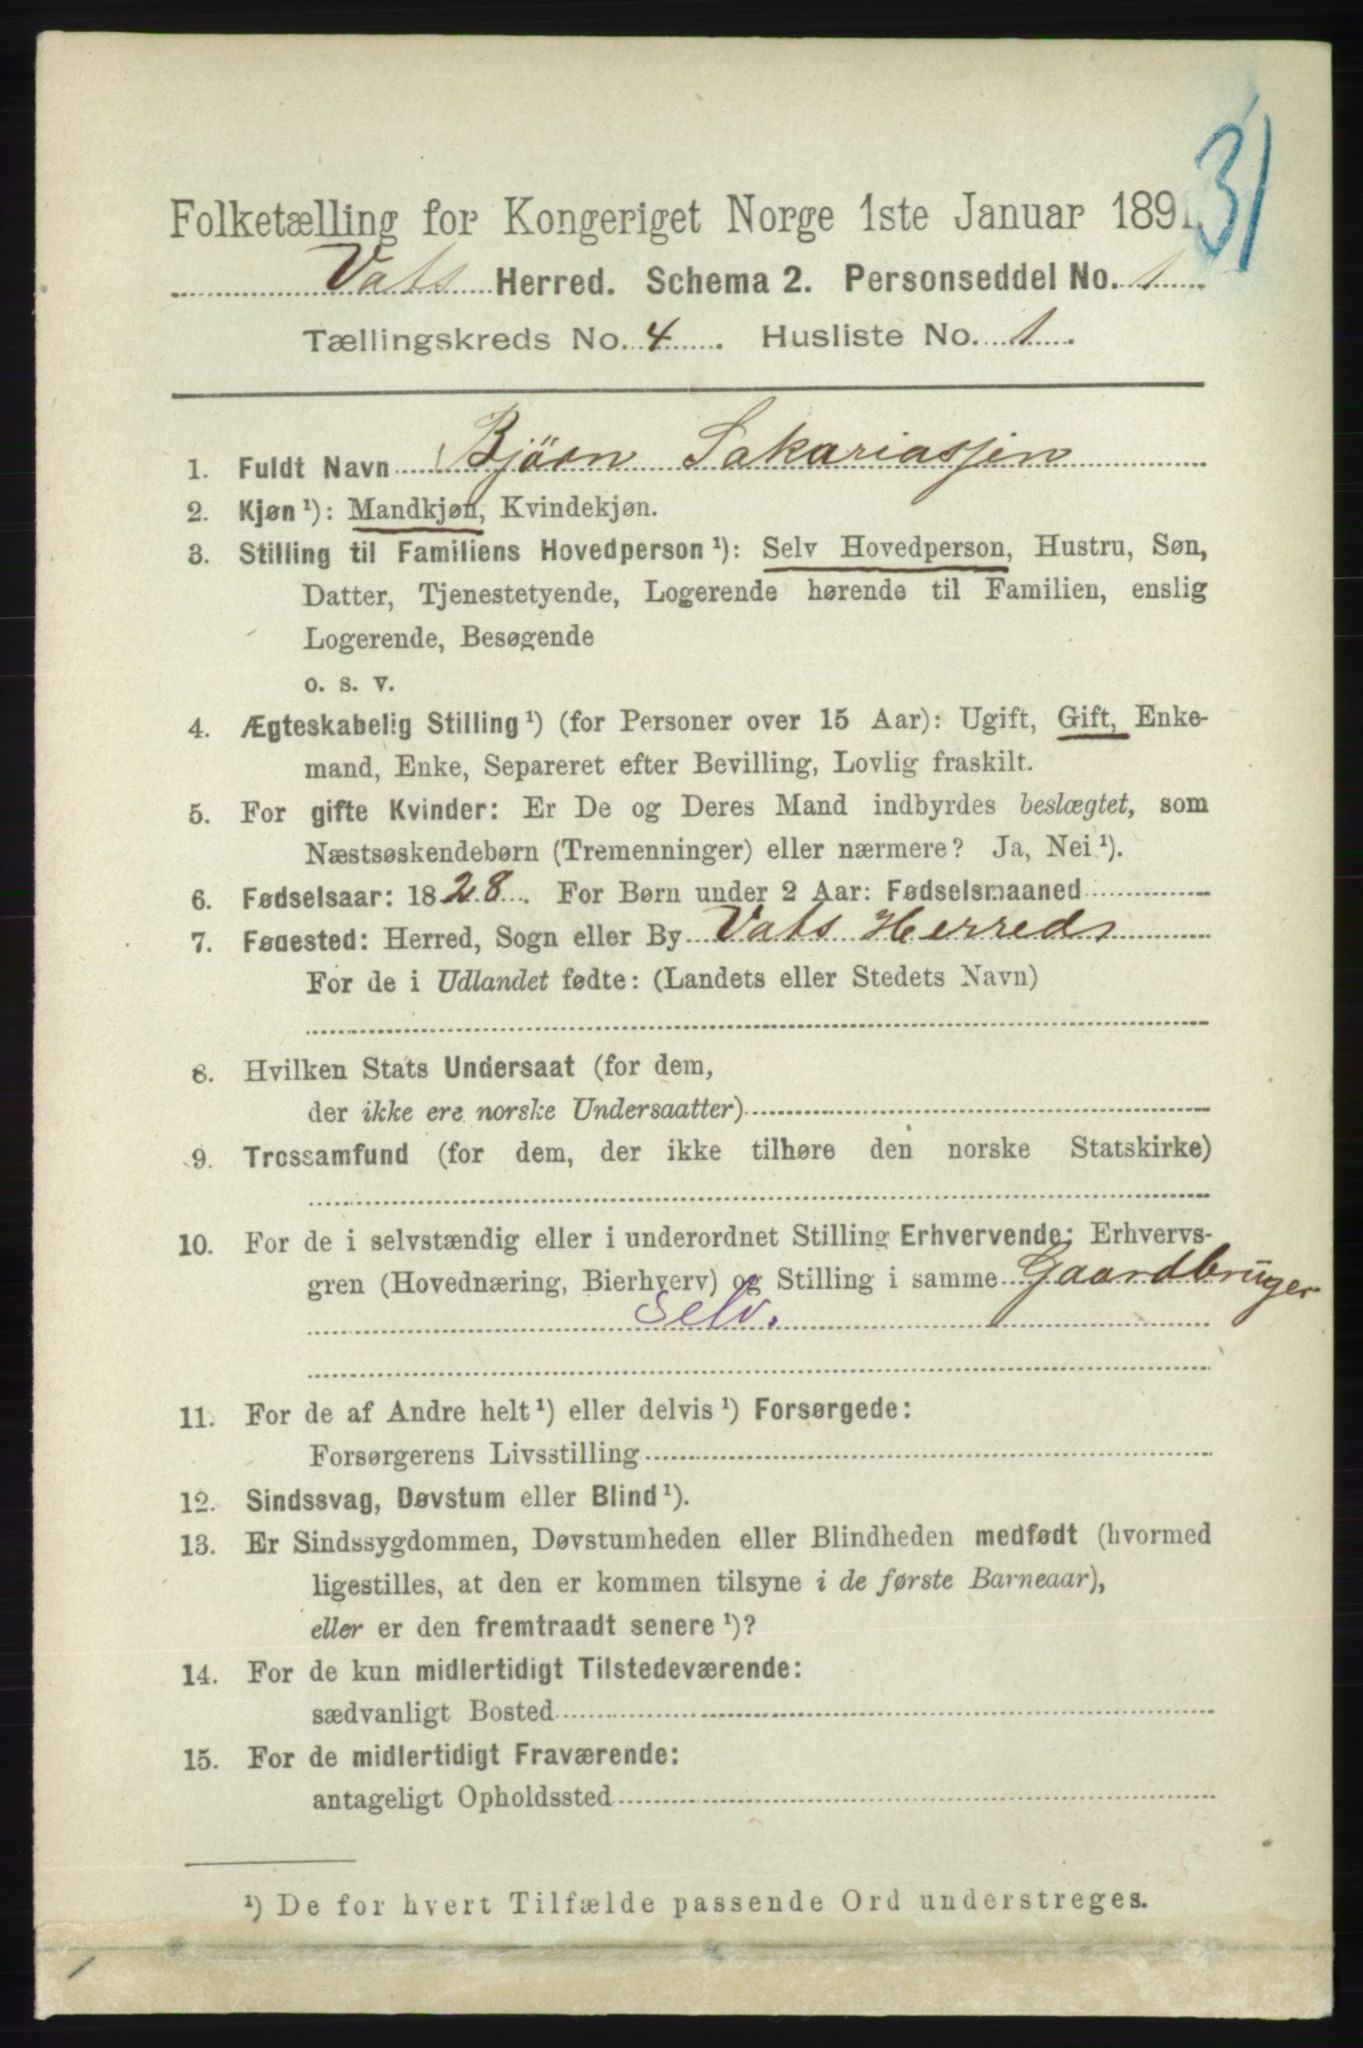 31
Folketælling for Kongeriget Norge 1ste Januar 1891.
Vats Herred. Schema 2. Personseddel No. 1
Tællingskreds No. 4 . Husliste No. 1 .
1. Fuldt Navn Bjöen Sakariassen
2. Kjøn¹): Mandkjøn, Kvindekjøn.
3. Stilling til Familiens Hovedperson¹): Selv Hovedperson, Hustru, Søn,
Datter, Tjenestetyende, Logerende hørende til Familien, enslig
Logerende, Besøgende
o. s. v.
4. Ægteskabelig Stilling¹) (for Personer over 15 Aar): Ugift, Gift, Enke-
mand, Enke, Separeret efter Bevilling, Lovlig fraskilt.
5. For gifte Kvinder: Er De og Deres Mand indbyrdes beslægtet, som
Næstsøskendebørn (Tremenninger) eller nærmere? Ja, Nei¹).
6. Fødselsaar: 1828. For Børn under 2 Aar: Fødselsmaaned
7. Fødested: Herred, Sogn eller By Vats Herreds
For de i Udlandet fødte: (Landets eller Stedets Navn)
8. Hvilken Stats Undersaat (for dem,
der ikke ere norske Undersaatter)
9. Trossamfund (for dem, der ikke tilhøre den norske Statskirke)
10. For de i selvstændig eller i underordnet Stilling Erhvervende: Erhvervs-
gren (Hovednæring, Bierhverv) og Stilling i samme Gaardbruger
selv.
11. For de af Andre helt¹) eller delvis¹) Forsørgede:
Forsørgerens Livsstilling
12. Sindssvag, Døvstum eller Blind¹).
13. Er Sindssygdommen, Døvstumheden eller Blindheden medfødt (hvormed
ligestilles, at den er kommen tilsyne i de første Barneaar),
eller er den fremtraadt senere¹)?
14. For de kun midlertidigt Tilstedeværende:
sædvanligt Bosted
15. For de midlertidigt Fraværende:
antageligt Opholdssted
¹) De for hvert Tilfælde passende Ord understreges.